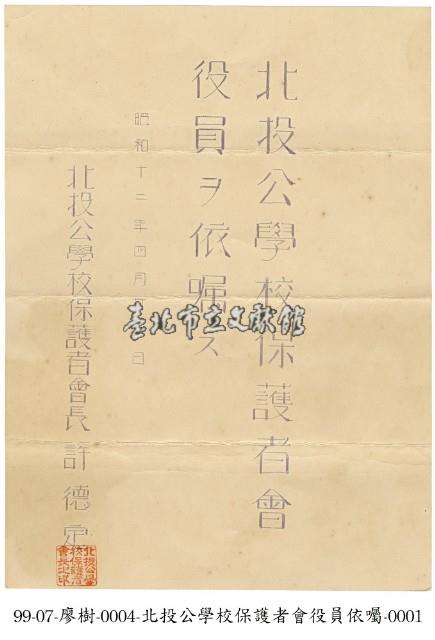 北投公學校保護者會
役員ヲ依嘱ス
昭和十二年四月 日
北投公學校保護者會長 許德
北投公學
校保護者
會長之印
臺北市立文獻館
99-07-廖樹-0004-北投公學校保護者會役員依囑-0001